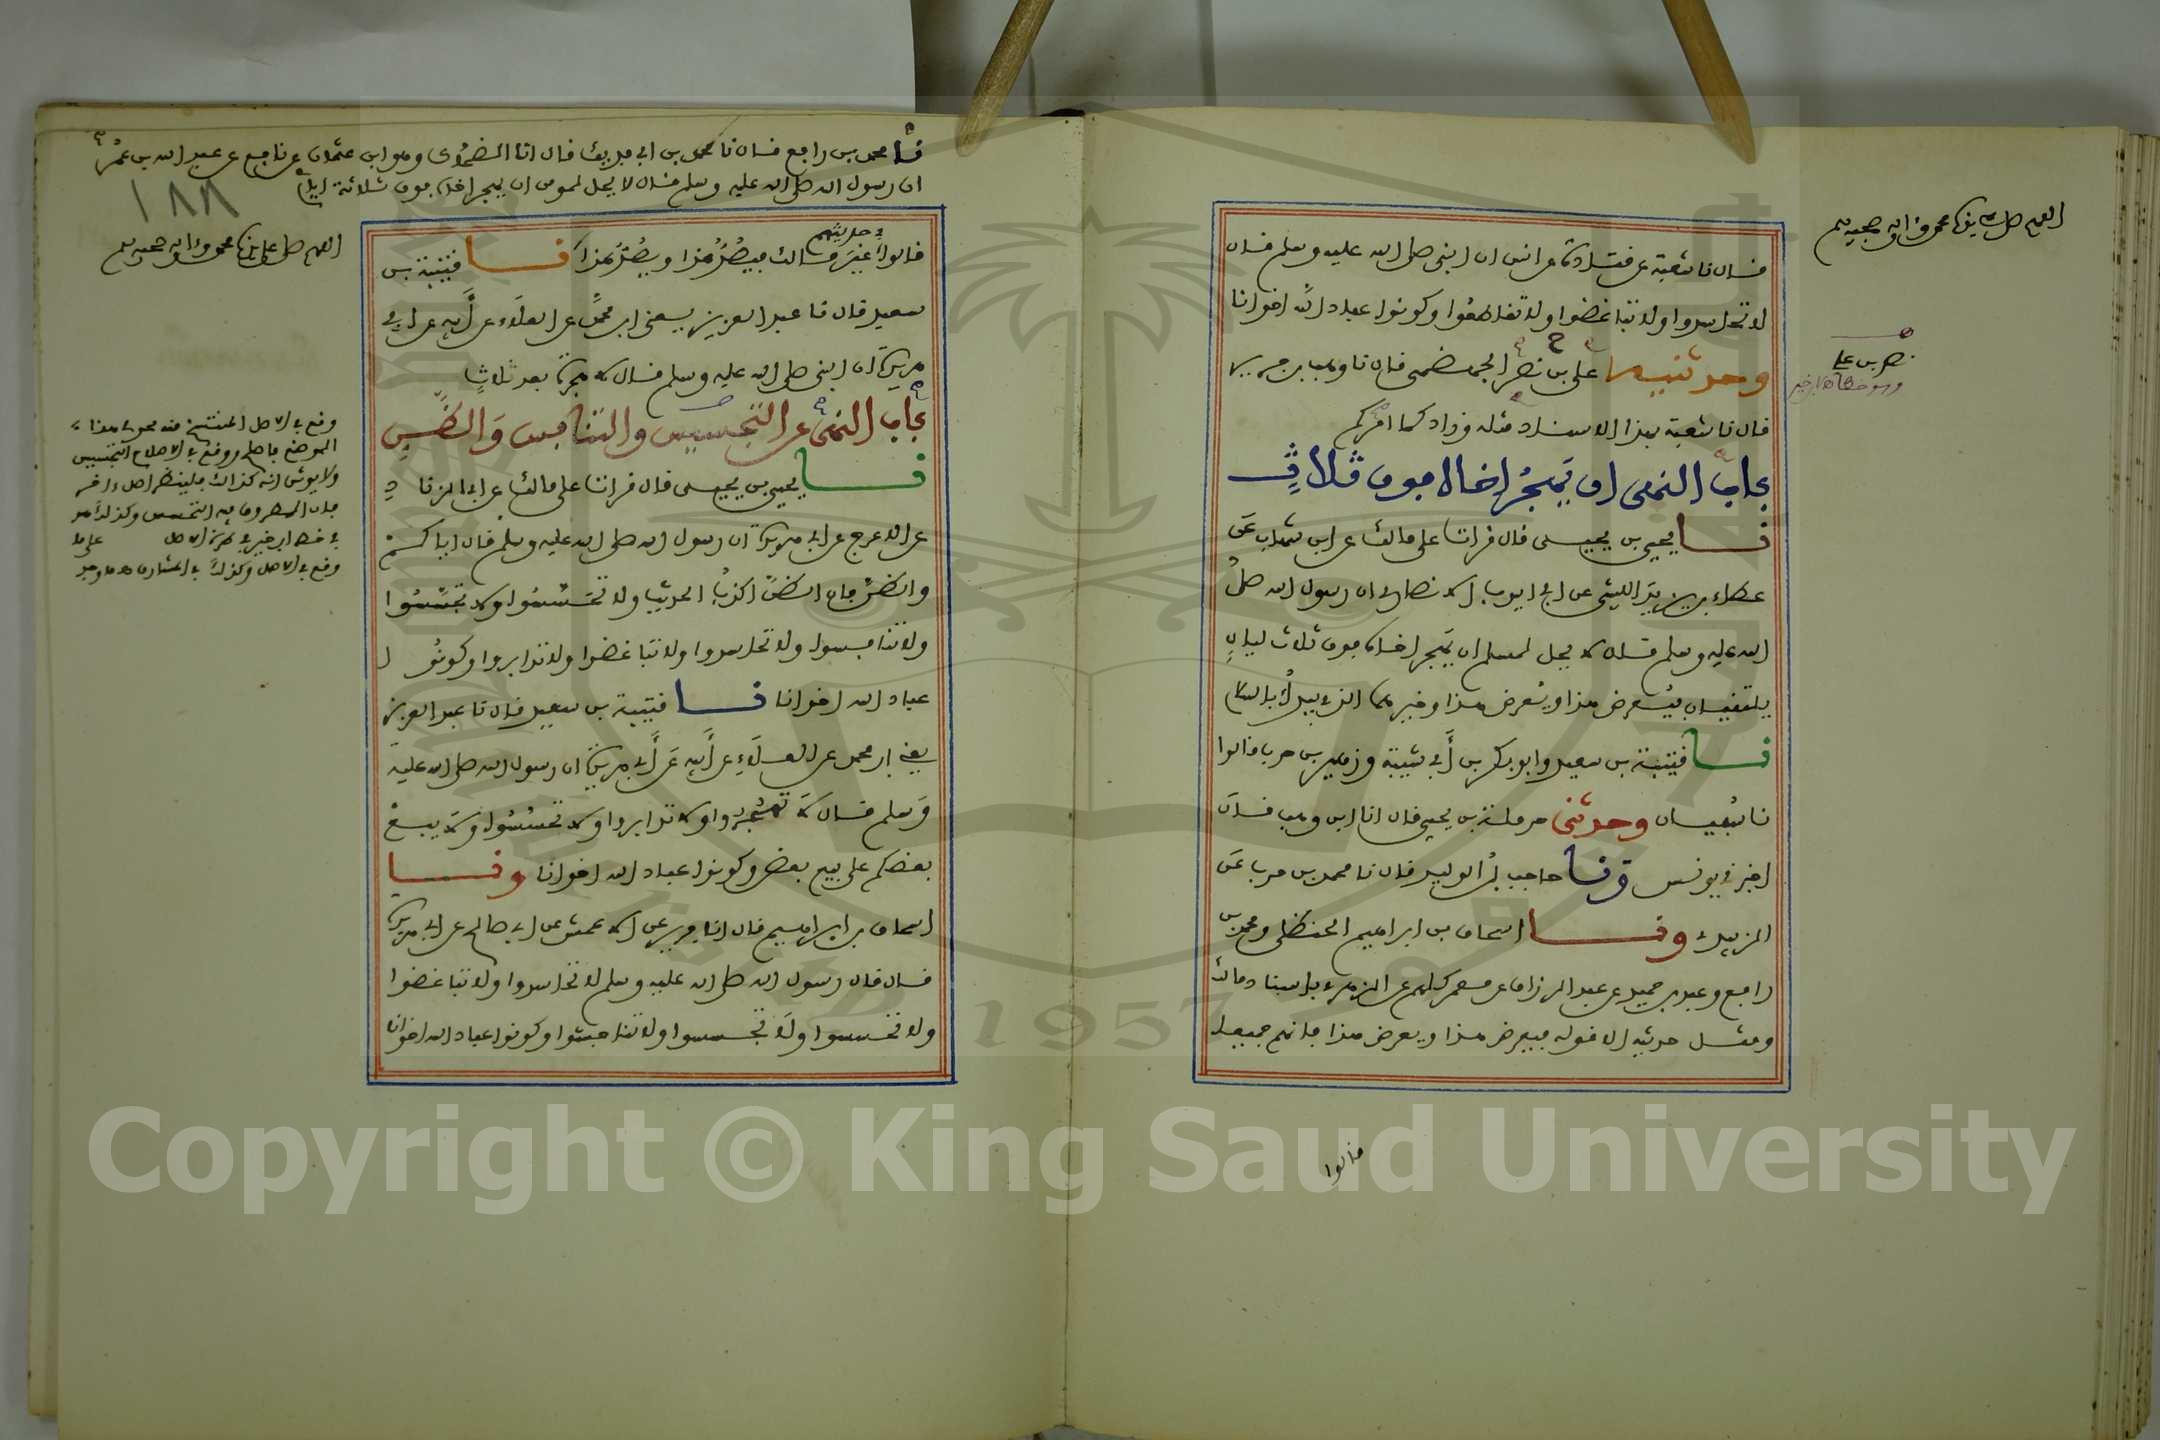 قال نا شعبة عن قتادة عن انس ان النبي صلى الله عليه وسلم قال
لا تحاسدوا ولا تباغضوا ولا تقاطعوا وكونوا عباد الله اخوانا
وحدثنيه علي بن نصر الجهضمي قال نا وهب بن جرير
قال نا شعبة بهذا الاسناد مثله وزاد كما امركم
باب النهي ان يهجر اخاه فوق ثلاث
نا يحيى بن يحيى قال قرات على مالك عن ابن شهاب عن
عطاء بن يزيد الليثي عن ابي ايوب الانصاري ان رسول الله صلى
الله عليه وسلم قال لا يحل لمسلم ان يهجر اخاه فوق ثلاث ليال
يلتقيان فيعرض هذا ويعرض هذا وخيرهما الذي يبدأ بالسلام
نا قتيبة بن سعيد وابو بكر بن أبي شيبة وزهير بن حرب قالوا
نا سفيان وحدثني حرملة بن يحيى قال انا ابن وهب قال
اخبرني يونس ونا حاجب بن الوليد قال نا محمد بن حرب عن
الزبيدي ونا اسحاق بن ابراهيم الحنظلي ومحمد بن
رافع وعبد بن حميد عن عبد الرزاق عن معمر كلهم عن الزهري باسناد مالك
ومثل حديثه الا قوله فيعرض هذا ويعرض هذا فانهم جميعا
قالوا
اللهم صل على سيدنا محمد وءاله وصحبه وسلم
نصر بن علي
نا محمد بن رافع قال نا محمد بن ابي فديك قال انا الضحاك وهو ابن عثمان عن نافع عن عبد الله بن عمر
ان رسول الله صلى الله عليه وسلم قال لا يحل لمومن ان يهجر اخاه فوق ثلاثة ايام
١٨٨
اللهم صل على سيدنا محمد وءاله وصحبه وسلم
في حديثهم
قالوا غير مالك فيصد هذا ويصد هذا نا قتيبة بن
سعيد قال نا عبد العزيز يعني ابن محمد عن العلاء عن أبيه عن ابي
هريرة ان النبي صلى الله عليه وسلم قال لا هجرة بعد ثلاث
باب النهي عن التجسيس والتنافس والظن
نا يحيى بن يحيى قال قرات على مالك عن ابي الزناد
عن الاعرج عن ابي هريرة ان رسول الله صلى الله عليه وسلم قال اياكم
والظن فان الظن اكذب الحديث ولا تحسسوا ولا تجسسوا
ولا تنافسوا ولا تحاسدوا ولا تباغضوا ولا تدابروا وكونوا
عباد الله اخوانا نا قتيبة بن سعيد قال نا عبد العزيز
يعني ابن محمد عن العلاء عن أبيه عن أبي هريرة ان رسول الله صلى الله عليه
وسلم قال لا تهجروا ولا تدابروا ولا تحسسوا ولا يبع
بعضكم على بيع بعض وكونوا عباد الله اخوانا ونا
اسحاق بن ابراهيم قال انا جرير عن الاعمش عن ابي صالح عن ابي هريرة
قال قال رسول الله صلى الله عليه وسلم لا تحاسدوا ولا تباغضوا
ولا تحسسوا ولا تجسسوا ولا تناجشوا وكونوا عباد الله اخوانا
وقع في الاصل المنتسخ منه
وقع في الاصل وكذلك في المشارق
Copyright © King Saud University
1957